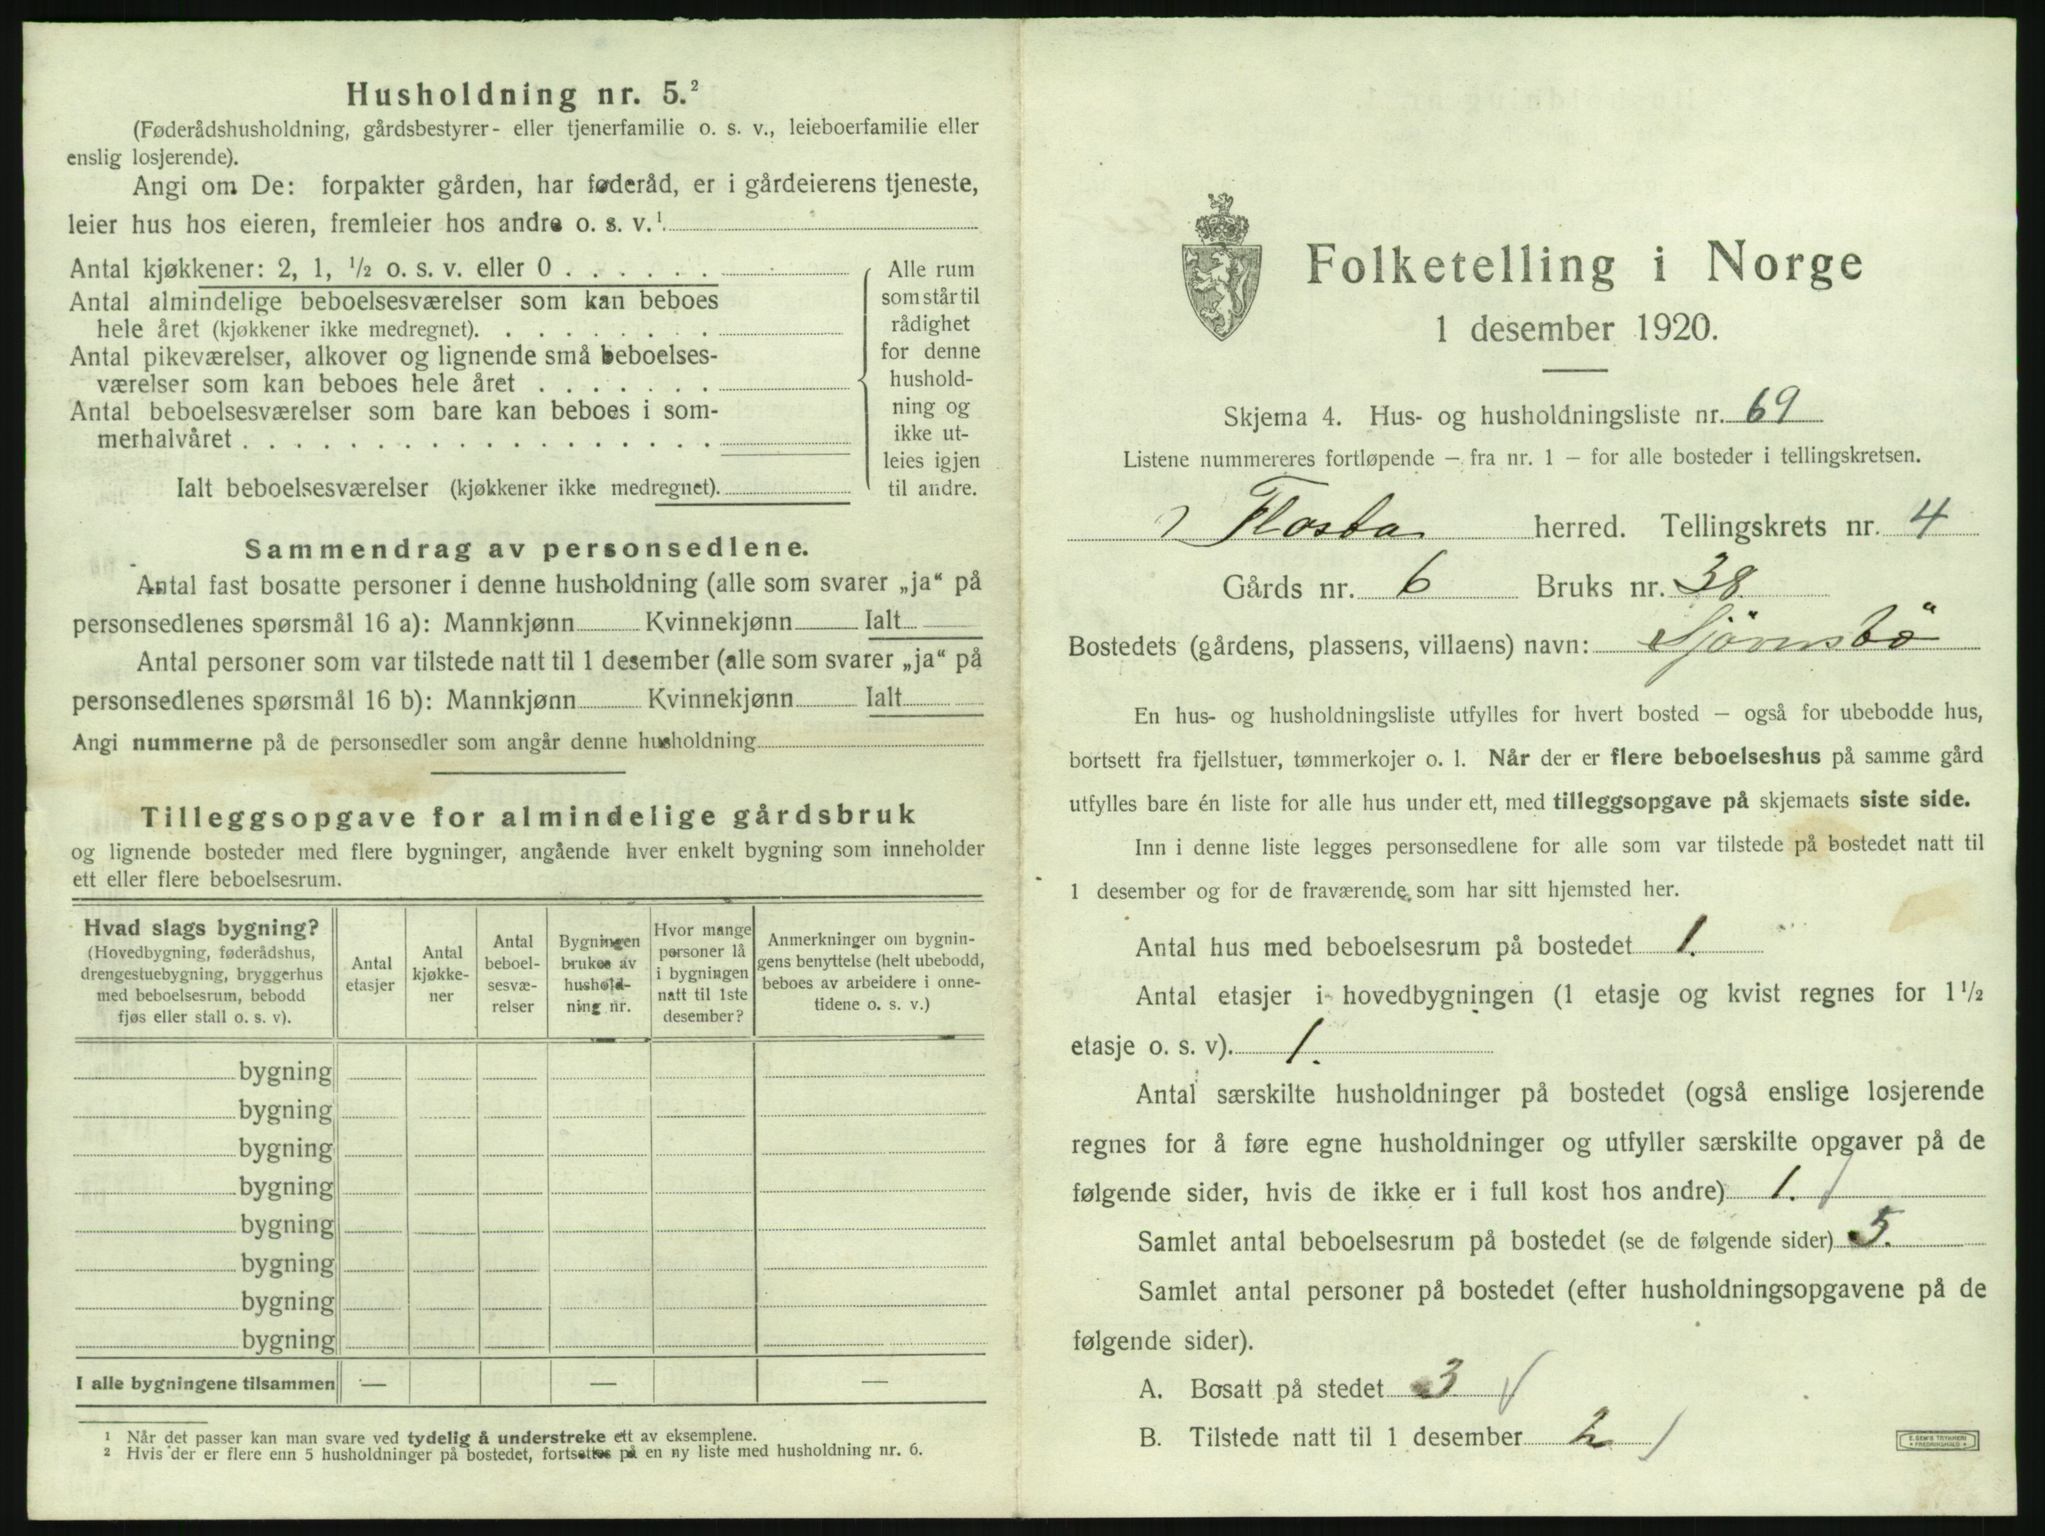 Husholdning nr. 5.²
(Føderådshusholdning, gårdsbestyrer- eller tjenerfamilie o. s. v., leieboerfamilie eller
enslig losjerende).
Angi om De: forpakter gården, har føderåd, er i gårdeierens tjeneste,
leier hus hos eieren, fremleier hos andre o. s. v.¹
Antal kjøkkener: 2, 1, ½ o. s. v. eller 0 . . . . . .
Antal almindelige beboelsesværelser som kan beboes
hele året (kjøkkener ikke medregnet). . . . . . . . .
Antal pikeværelser, alkover og lignende små beboelses-
værelser som kan beboes hele året . . . . . . .
Antal beboelsesværelser som bare kan beboes i som-
merhalvåret . . . . . . . . . . . . . . . . . .
Ialt beboelsesværelser (kjøkkener ikke medregnet).
Alle rum
som står til
rådighet
for denne
hushold-
ning og
ikke ut-
leies igjen
til andre.
Sammendrag av personsedlene.
Antal fast bosatte personer i denne husholdning (alle som svarer „ja“ på
personsedlenes spørsmål 16 a): Mannkjønn Kvinnekjønn Ialt
Antal personer som var tilstede natt til 1 desember (alle som svarer „ja“ på
personsedlenes spørsmål 16 b): Mannkjønn Kvinnekjønn Ialt
Angi nummerne på de personsedler som angår denne husholdning
Tilleggsopgave for almindelige gårdsbruk
og lignende bosteder med flere bygninger, angående hver enkelt bygning som inneholder
ett eller flere beboelsesrum.
Hvad slags bygning?
(Hovedbygning, føderådshus,
drengestuebygning, bryggerhus
med beboelsesrum, bebodd
fjøs eller stall o. s. v).
Antal
etasjer
Antal
kjøkke-
ner
Antal
beboel-
sesvæ-
relser
Bygningen
brukes av
hushold-
ning nr.
Hvor mange
personer lå
i bygningen
natt til 1ste
desember?
Anmerkninger om bygnin-
gens benyttelse (helt ubebodd,
beboes av arbeidere i onne-
tidene o. s. v.)
bygning
bygning
bygning
bygning
bygning
bygning
bygning
bygning
I alle bygningene tilsammen — — —
¹ Når det passer kan man svare ved tydelig å understreke ett av eksemplene.
² Hvis der er flere enn 5 husholdninger på bostedet, fortsettes på en ny liste med husholdning nr. 6.
Folketelling i Norge
1 desember 1920.
Skjema 4. Hus- og husholdningsliste nr. 69
Listene nummereres fortløpende – fra nr. 1 – for alle bosteder i tellingskretsen.
Flosta herred. Tellingskrets nr. 4
Gårds nr. 6 Bruks nr. 38
Bostedets (gårdens, plassens, villaens) navn: Sjömsbö
En hus- og husholdningsliste utfylles for hvert bosted – også for ubebodde hus,
bortsett fra fjellstuer, tømmerkojer o. l. Når der er flere beboelseshus på samme gård
utfylles bare én liste for alle hus under ett, med tilleggsopgave på skjemaets siste side.
Inn i denne liste legges personsedlene for alle som var tilstede på bostedet natt til
1 desember og for de fraværende som har sitt hjemsted her.
Antal hus med beboelsesrum på bostedet 1.
Antal etasjer i hovedbygningen (1 etasje og kvist regnes for 1½
etasje o. s. v). 1.
Antal særskilte husholdninger på bostedet (også enslige losjerende
regnes for å føre egne husholdninger og utfyller særskilte opgaver på de
følgende sider, hvis de ikke er i full kost hos andre) 1.
Samlet antal beboelsesrum på bostedet (se de følgende sider) 5.
Samlet antal personer på bostedet (efter husholdningsopgavene på de
følgende sider).
A. Bosatt på stedet 3
B. Tilstede natt til 1 desember 2
E. SEM'S TRYKKERI
FREDRIKSHALD